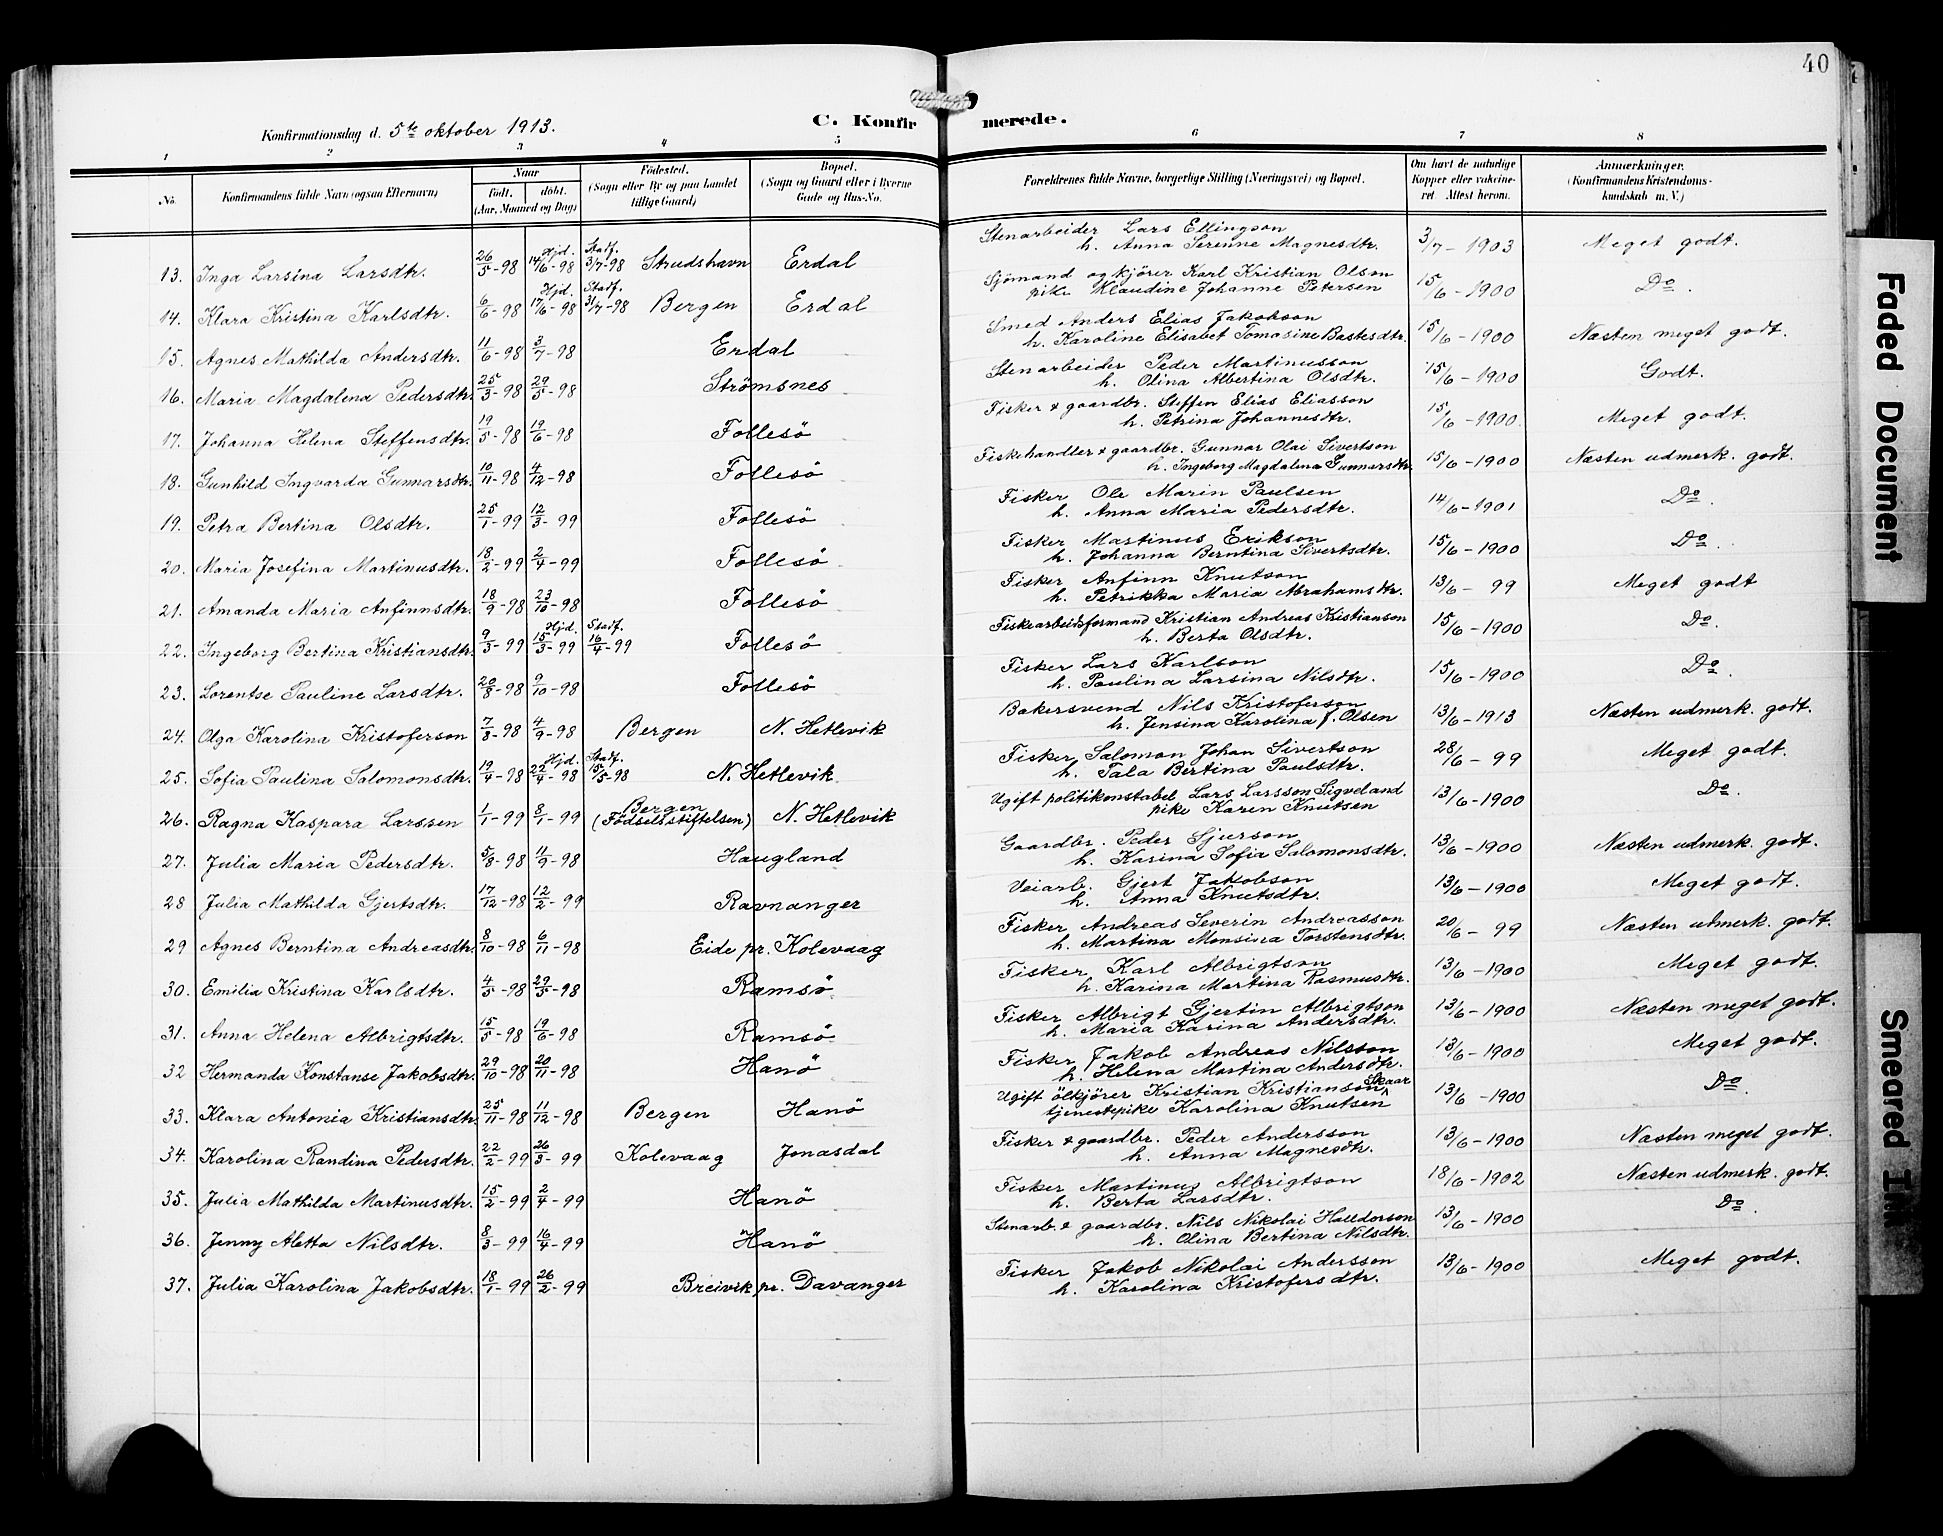 40
Konfirmationsdag d. 5te oktober 1913.
C. Konfirmerede.
1 2 3 4 5 6 7 8
No. Konfirmandens fulde Navn (ogsaa Efternavn) Naar født. døbt. (Aar, Maaned og Dag) Fødested. (Sogn eller By og paa Landet tillige Gaard) Bopæl. (Sogn og Gaard eller i Byerne Gade og Hus-No. Forældrenes fulde Navne, borgerlige Stilling (Næringsvei) og Bopæl. Om havt de naturlige Kopper eller vakcineret. Attest herom. Anmærkninger. (Konfirmandens Kristendomskundskab m. V.)
13. Inga Larsina Larsdtr. 26/5-98 Hjd. 14/6-98 Stadf. 3/7-98 Strudshavn Erdal Stenarbeider Lars Ellingson h. Anna Serenne Magnesdtr. 3/7-1903 Meget godt.
14. Klara Kristina Karlsdtr. 6/6-98 Hjd. 17/6-98 Stadf. 31/7-98 Bergen Erdal Sjömand og kjörer Karl Kristian Olson pike Klaudine Johanne Petersen 15/6-1900 Do.
15. Agnes Mathilda Andersdtr. 11/6-98 3/7-98 Erdal Smed Anders Elias Jakobson h. Karoline Elisabet Tomasine Bastesdtr. 15/6-1900 Næsten meget godt.
16. Maria Magdalena Pedersdtr. 25/3-98 29/5-98 Strömsnes Stenarbeider Peder Martinusson h. Olina Albertina Olsdtr. 15/6-1900 Godt.
17. Johanna Helena Steffensdtr. 19/5-98 19/6-98 Follesö Fisker & gaardbr. Steffen Elias Eliasson h. Petrina Johannesdtr. 15/6-1900 Meget godt.
18. Gunhild Ingvarda Gunnarsdtr. 10/11-98 4/12-98 Follesö Fiskehandler & gaardbr. Gunnar Olai Sivertson h. Ingeborg Magdalena Gunnarsdtr. 15/6-1900 Næsten udmerk. godt.
19. Petra Bertina Olsdtr. 25/1-99 12/3-99 Follesö Fisker Ole Marin Paulsen h. Anna Maria Pedersdtr. 14/6-1901 Do.
20. Maria Josefina Martinusdtr. 18/2-99 2/4-99 Follesö Fisker Martinus Erikson h. Johanna Berntina Sivertsdtr. 15/6-1900 Do.
21. Amanda Maria Anfinnsdtr. 18/9-98 23/10-98 Follesö Fisker Anfinn Knutson h. Petrikka Maria Abrahamsdtr. 13/6-99 Meget godt
22. Ingeborg Bertina Kristiansdtr. 9/3-99 Hjd. 15/3-99 Stadf. 16/4-99 Follesö Fiskearbeidsformand Kristian Andreas Kristianson h. Berta Olsdtr. 15/6-1900 Do.
23. Lorentse Pauline Larsdtr. 20/8-98 9/10-98 Follesö Fisker Lars Karlson h. Paulina Larsina Nilsdtr. 15/6-1900 Do.
24. Olga Karolina Kristoferson 7/8-98 4/9-98 Bergen N. Hetlevik Bakersvend Nils Kristoferson h. Jensina Karolina f. Olsen 13/6-1913 Næsten udmerk. godt.
25. Sofia Paulina Salomonsdtr. 19/4-98 Hjd. 22/4-98 Stadf. 15/5-98 N. Hetlevik Fisker Salomon Johan Sivertson h. Tala Bertina Paulsdtr. 28/6-99 Meget godt.
26. Ragna Kaspara Larssen 1/1-99 8/1-99 Bergen (Födselsstiftelsen) N. Hetlevik Ugift politikonstabel Lars Larsson Sigveland pike Karen Knutsen 13/6-1900 Do.
27. Julia Maria Pedersdtr. 5/8-98 11/9-98 Haugland Gaardbr. Peder Sjurson h. Karina Sofia Salomonsdtr. 13/6-1900 Næsten udmerk. godt.
28 Julia Mathilda Gjertsdtr. 17/12-98 12/2-99 Ravnanger Veiarb. Gjert Jakobson h. Anna Knutsdtr. 13/6-1900 Meget godt.
29 Agnes Berntina Andreasdtr. 8/10-98 6/11-98 Eide pr. Kolevaag Fisker Andreas Severin Andreasson h. Martina Monsina Torstensdtr. 20/6-99 Næsten udmerk. godt.
30. Emilia Kristina Karlsdtr. 4/5-98 29/5-98 Ramsö Fisker Karl Albrigtson h. Karina Martina Rasmusdtr. 13/6-1900 Meget godt.
31. Anna Helena Albrigtsdtr. 15/5-98 19/6-98 Ramsö Fisker Albrigt Gjertin Albrigtson h. Maria Karina Andersdtr. 13/6-1900 Næsten meget godt.
32 Hermanda Konstanse Jakobsdtr. 29/10-98 20/11-98 Hanö Fisker Jakob Andreas Nilsson h. Helena Martina Andersdtr. 13/6-1900 Meget godt.
33. Klara Antonia Kristiansdtr 25/11-98 11/12-98 Bergen Hanö Ugift ölkjörer Kristian Kristianson Skaar tjenestepike Karolina Knutsen 13/6-1900 Do.
34. Karolina Randina Pedersdtr. 22/2-99 26/3-99 Kolevaag Jonasdal Fisker & gaardbr. Peder Andersson h. Anna Magnesdtr. 13/6-1900 Næsten meget godt.
35. Julia Mathilda Martinusdtr. 15/2-99 2/4-99 Hanö Fisker Martinus Albrigtson h. Berta Larsdtr. 18/6-1902 Næsten udmerk. godt.
36. Jenny Aletta Nilsdtr. 8/3-99 16/4-99 Hanö Stenarb. & gaardbr. Nils Nikolai Halldorson h. Olina Bertina Nilsdtr. 13/6-1900 Do.
37. Julia Karolina Jakobsdtr. 18/1-99 26/2-99 Breivik pr. Davanger Fisker Jakob Nikolai Andersson h. Karolina Kristofersdtr. 13/6-1900 Meget godt.
Faded Document
Smeared Ink